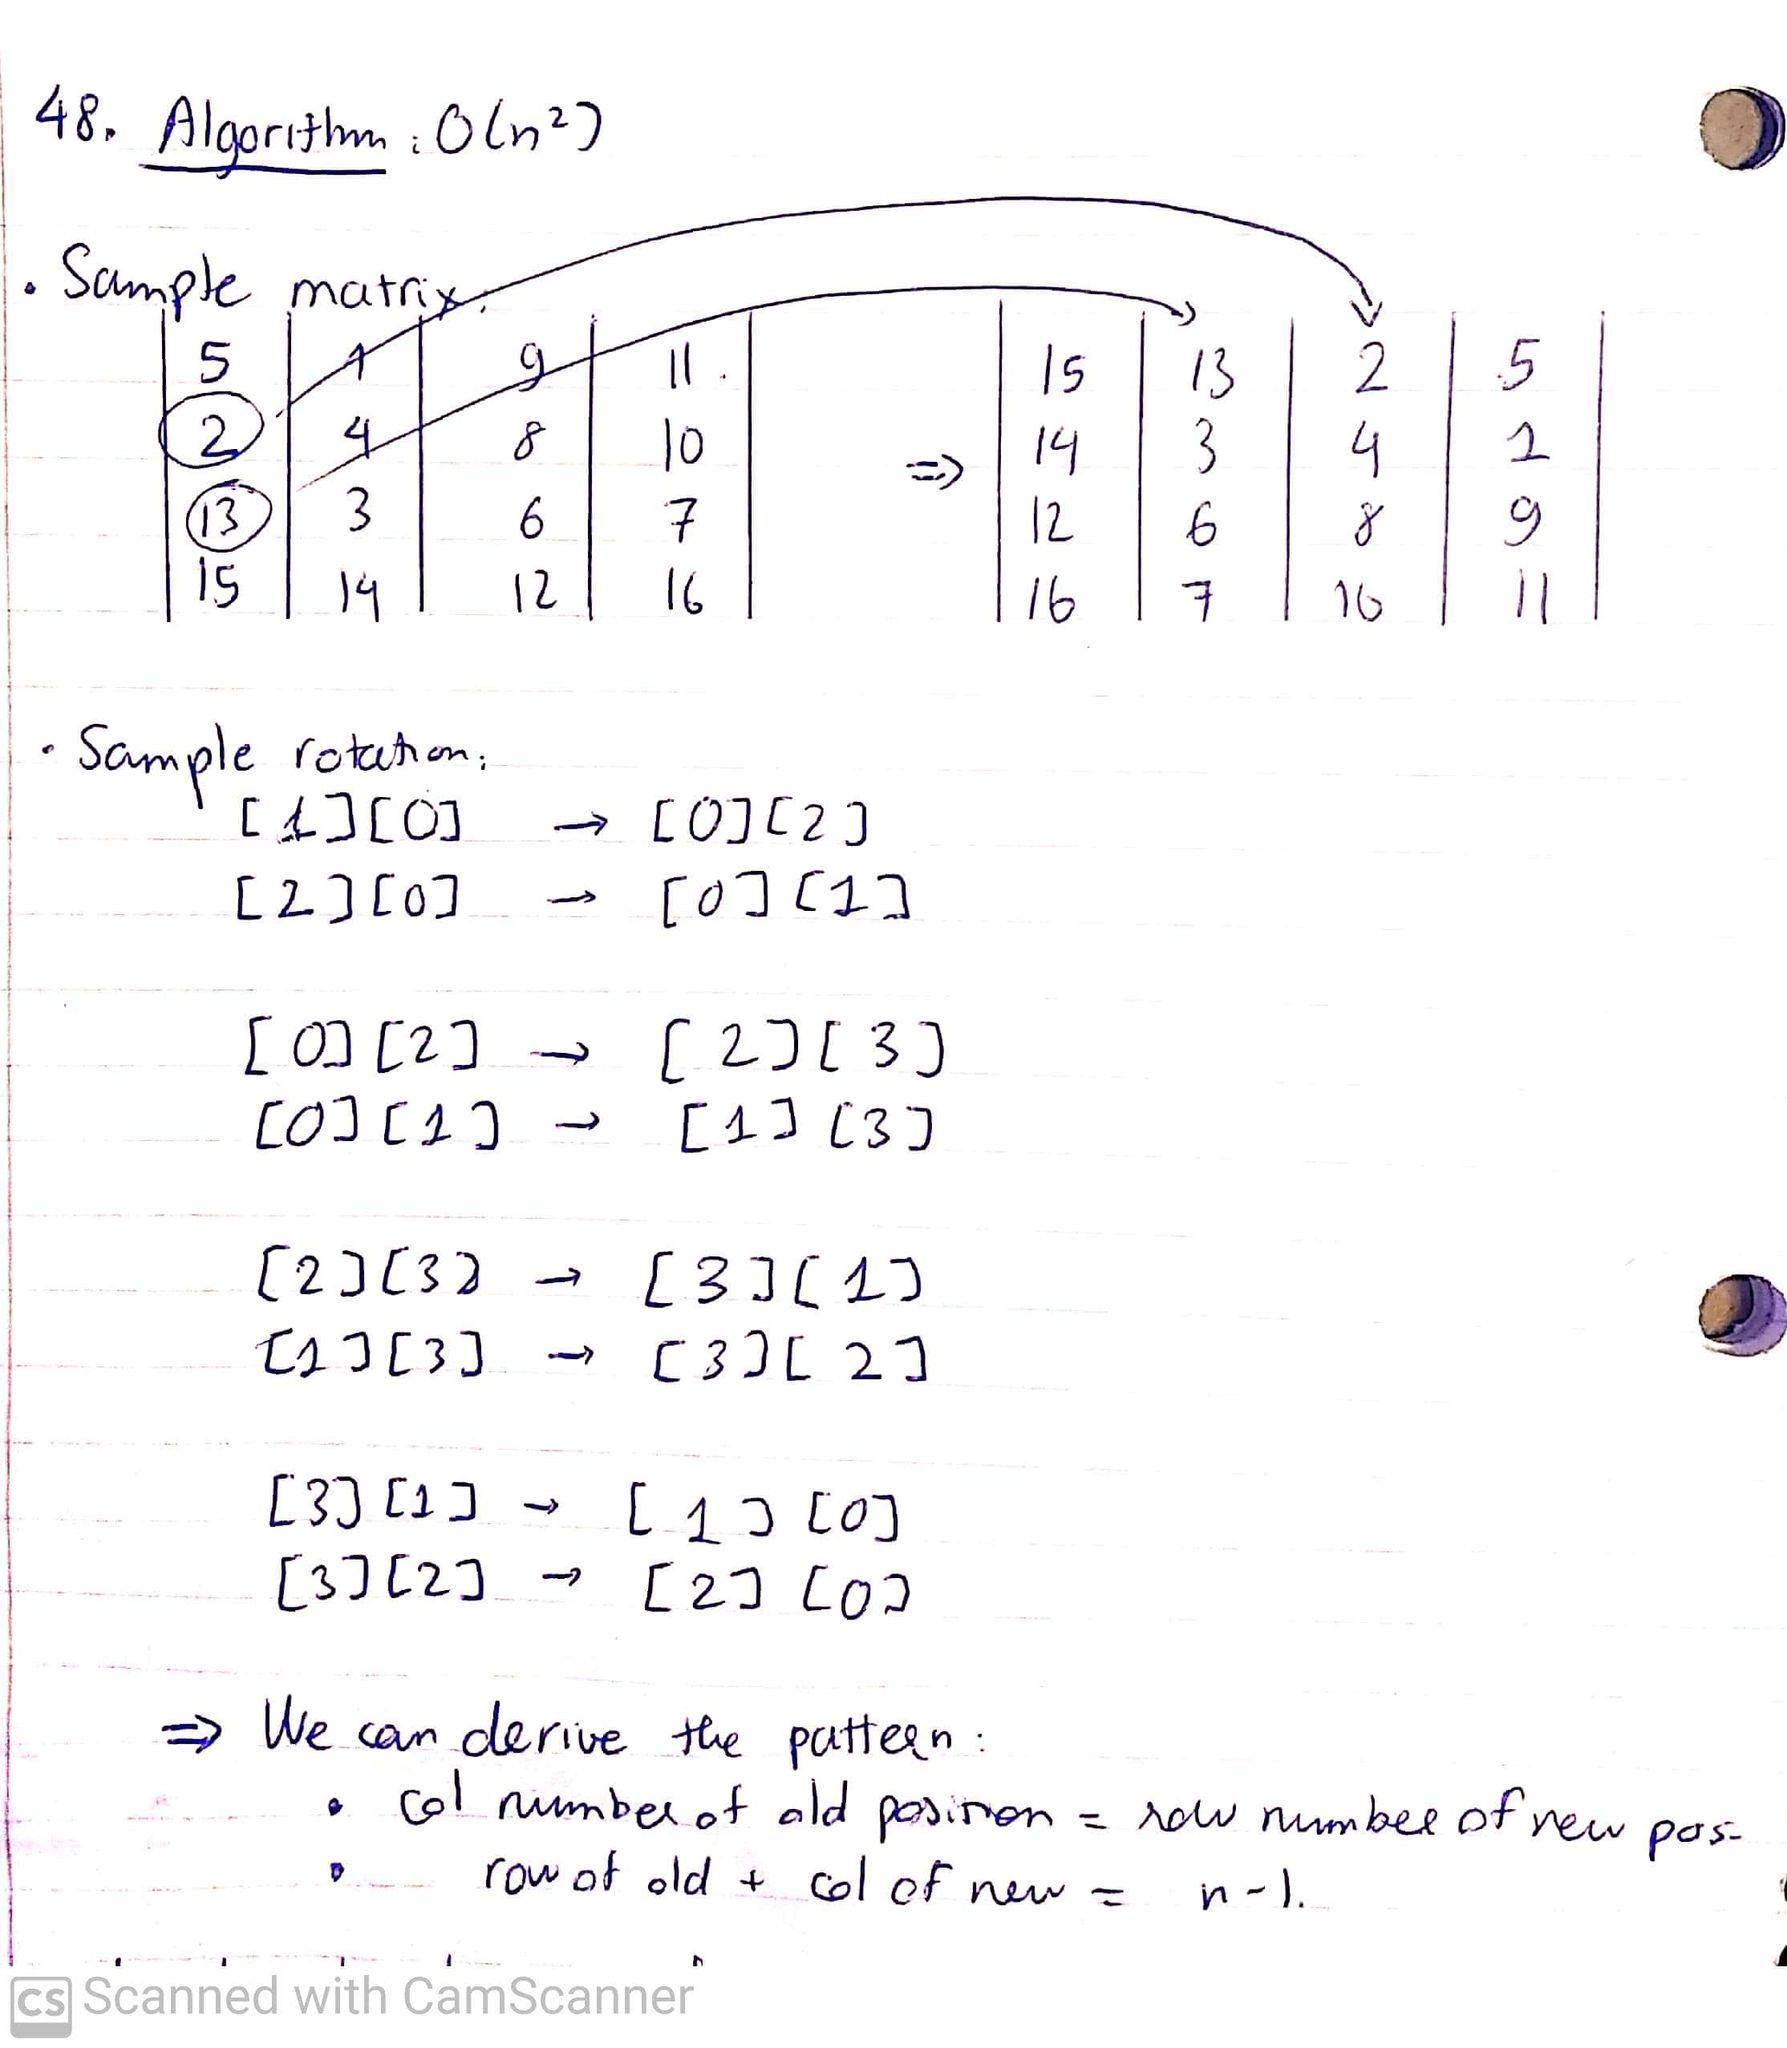 48. Algorithm: O(n²)
• Sample matrix:
5 | 1 | 9 | 11 | 15 | 13 | 2 | 5
2 | 4 | 8 | 10 => 14 | 3 | 4 | 1
13 | 3 | 6 | 7 | 12 | 6 | 8 | 9
15 | 14 | 12 | 16 | 16 | 7 | 10 | 11
• Sample rotation:
[1][0] → [0][2]
[2][0] → [0][1]
[0][2] → [2][3]
[0][1] → [1][3]
[2][3] → [3][1]
[1][3] → [3][2]
[3][1] → [1][0]
[3][2] → [2][0]
=> We can derive the pattern:
• col number of old position = row number of new pos-
• row of old + col of new = n-1.
CS Scanned with CamScanner